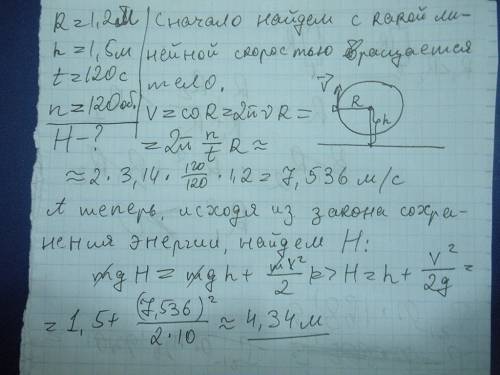 R = 1,2м
h = 1,5м
t = 120с
n = 120об.
H - ?
Сначало найдем с какой ли-
нейной скоростью вращается
тело.
V = ωR = 2πνR =
= 2π n/t R ≈
≈ 2 · 3,14 · 120/120 · 1,2 = 7,536 м/с
V
R
h
А теперь, исходя из закона сохра-
нения энергии, найдем H:
mgH = mgh + mv²/2 => H = h + V²/2g =
= 1,5 + (7,536)²/2·10 ≈ 4,34м